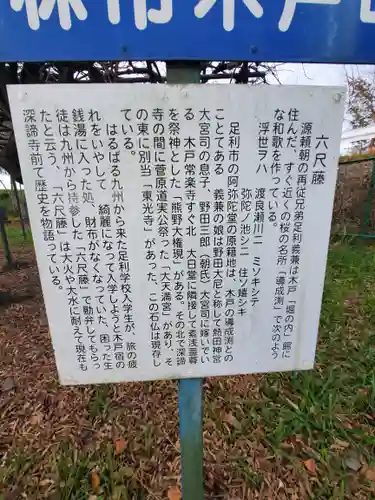 林市木戸
六尺藤
源頼朝の再従兄弟足利義兼は木戸「堀の内」館に
住んだ。すぐ近くの桜の名所「導成渕」で次のよう
な和歌を作っている。
浮世ヲハ 渡良瀬川ニ ミソキシテ
弥陀ノ池シ二 住ソ嬉シキ
足利市の阿弥陀堂の原籍地は、木戸の導成渕との
ことである 義兼の娘は野田大尼と称して熱田神宮
大宮司の息子、野田三郎(朝氏)大宮司に嫁いでい
る 木戸常楽寺すぐ北 大日堂に隣接して素浅嵩尊
を祭神とした「熊野大権現」がある。その北で深諦
寺の間に菅原道実公祭った「大天満宮」があり、そ
の東に別当「東光寺」があった、この石仏は現存し
ている。
はるばる九州から来た足利学校入学生が、旅の疲
れをいやして 綺麗になって入学しようと木戸宿の
銭湯に入った処、財布がなくなっていた、困った生
徒は九州から持参した「六尺藤」で勘弁してもらっ
たと云う、「六尺藤」は大火や大水に耐えて現在も
深諦寺前て歴史を物語っている。